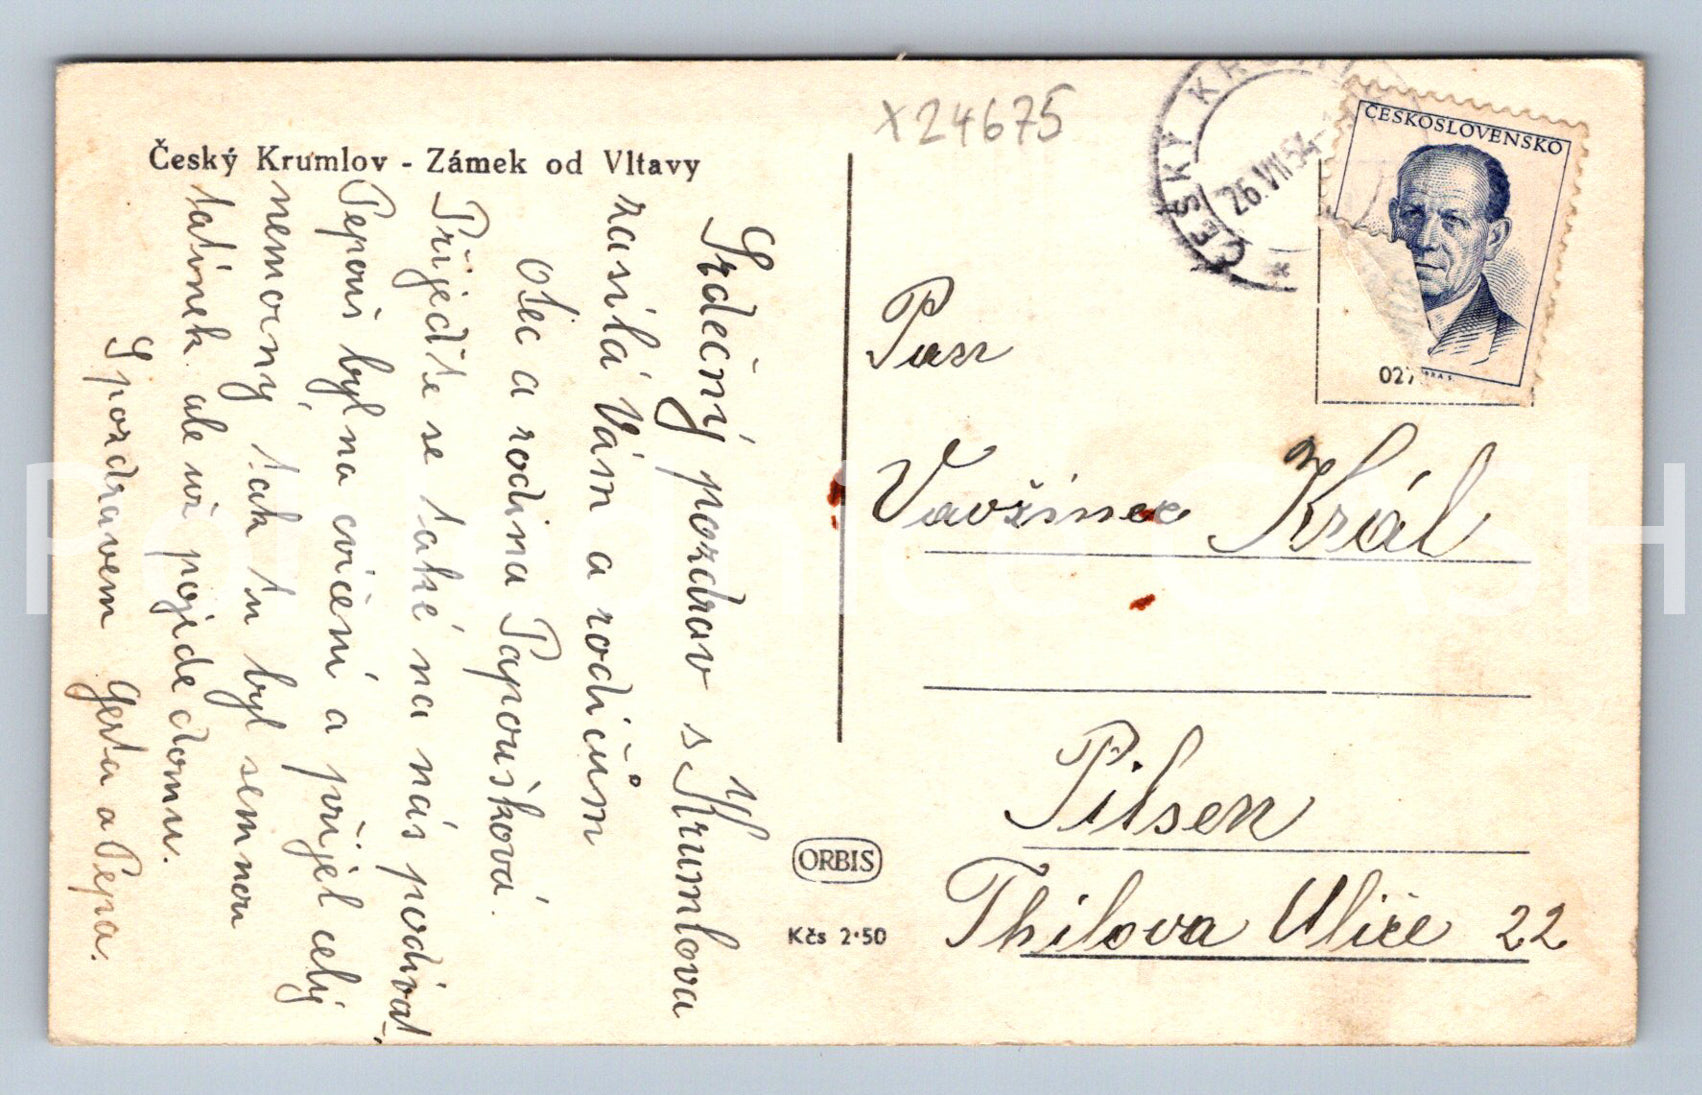 Český Krumlov - Zámek od Vltavy
X24675
ČESKÝ KRUML
26.VII.54-
ČESKOSLOVENSKO
027
Srdečný pozdrav s Krumlova
zasílá Vám a rodičům
otec a rodina Papoušková.
Přijeďte se také na nás podívat,
Pepouš byl na cvičení a přijel celý
nemocný tak tu byl semnou
tatínek ale už pojede domu.
S pozdravem Gerta a Pepa.
Pan
Vavžinec Král
Pilsen
Thilova Uliče 22
ORBIS
Kčs 2·50